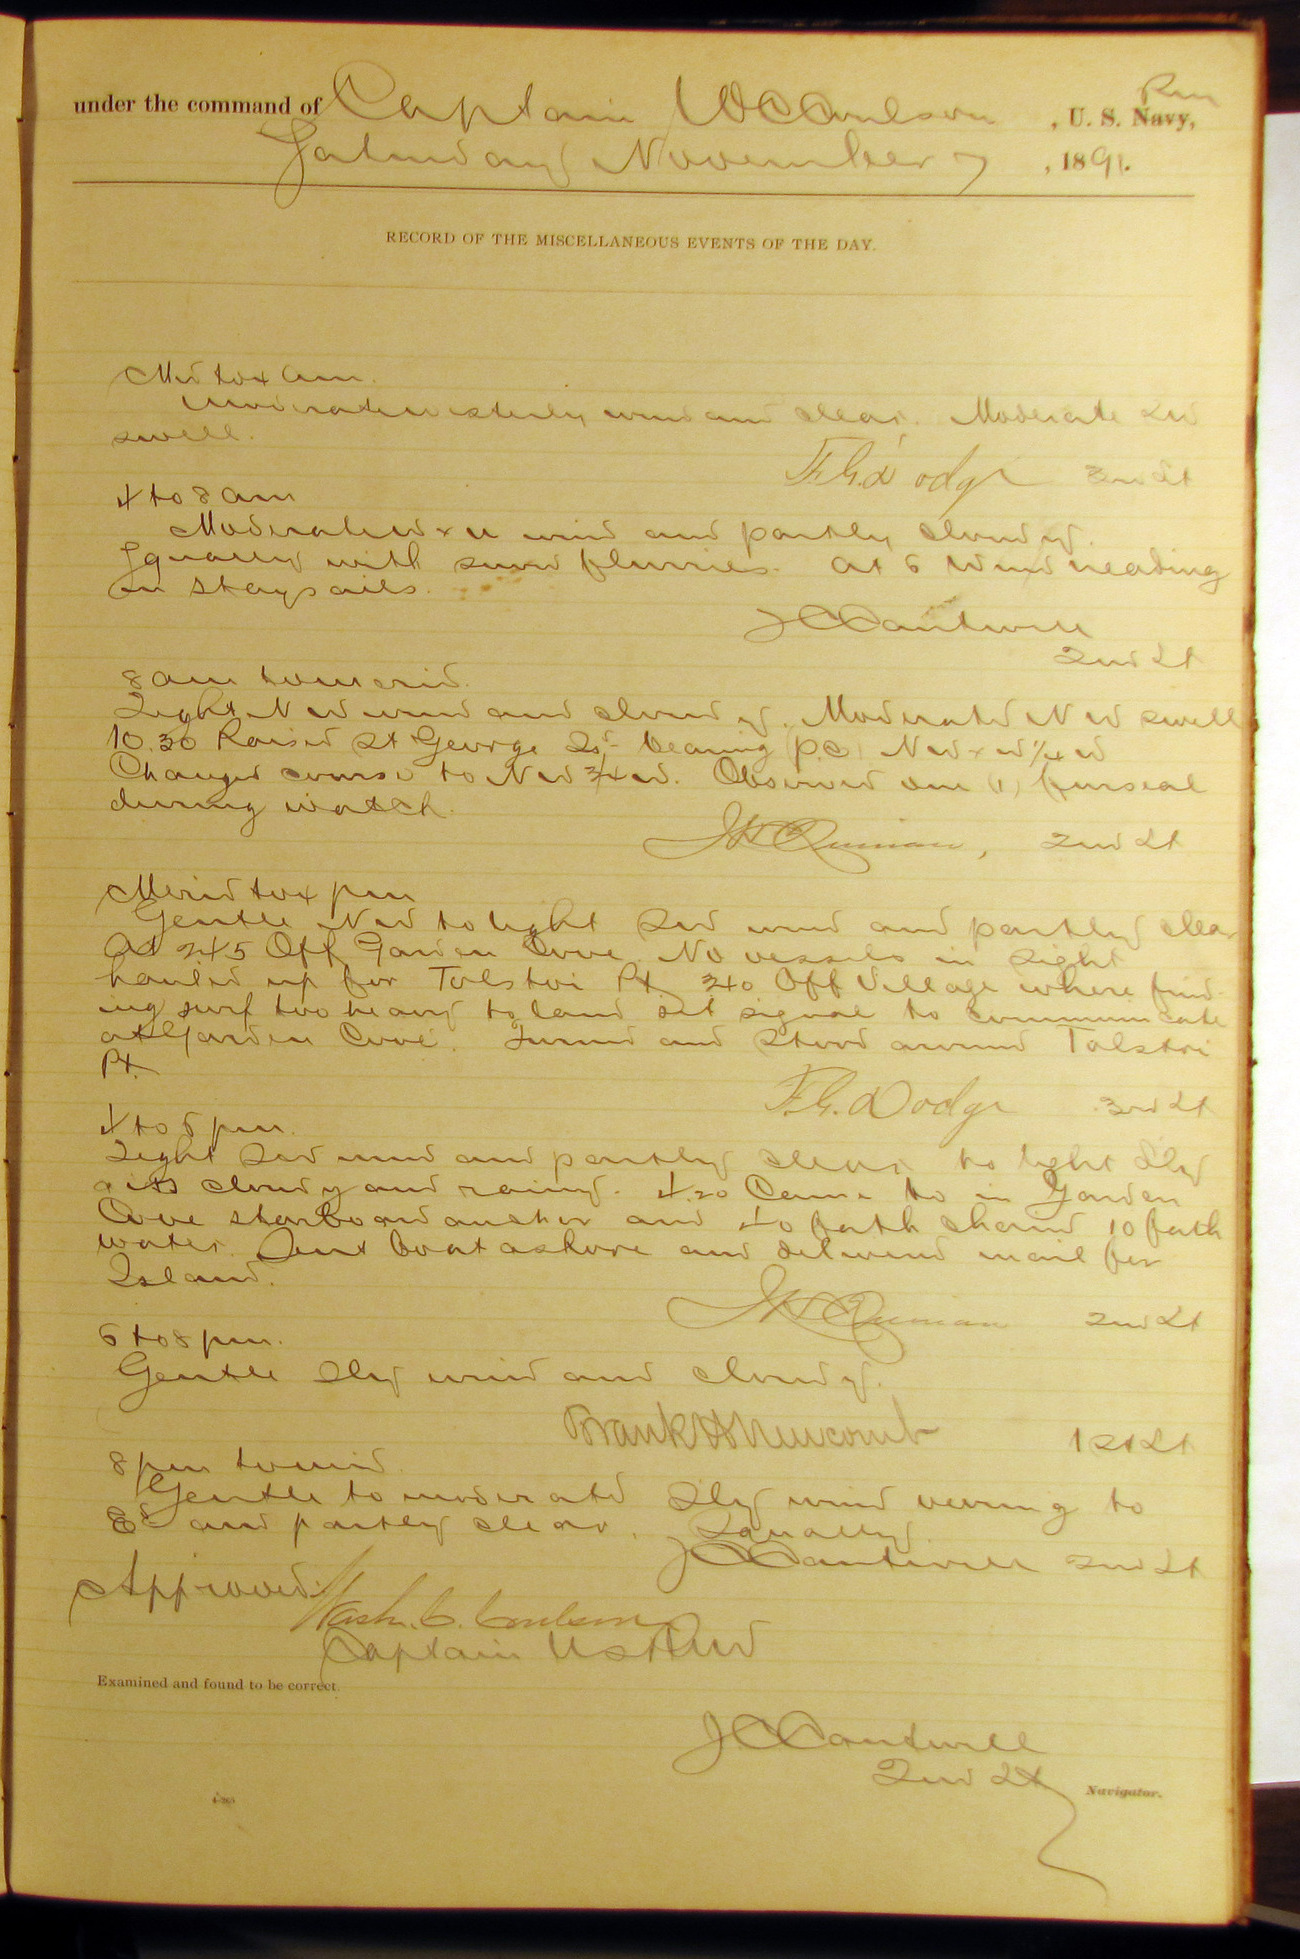 under the command of Captain W C Coulson , U. S. Rev Navy,
Saturday November 7 , 1891.
RECORD OF THE MISCELLANEOUS EVENTS OF THE DAY.
Mid to 4 am.
Moderate westerly wind and clear. Moderate SW
swell.
F.G. Dodge 3rd Lt
4 to 8 am
Moderate W x N wind and partly cloudy.
Squally with snow flurries. At 6 Wind heading
in staysails.
J C Cantwell
2nd Lt
8 am to merid.
Light NW wind and cloudy. Moderate NW swell
10.30 Raised St George Isd bearing (p.c) NW x W 1/4 W
Changed course to NW 3/4 W. Observed one (1) fur seal
during watch.
J W Quinan, 2nd Lt
Merid to 4 pm
Gentle NW to light SW wind and partly clear
At 2.45 Off Garden Cove. No vessels in sight
hauled up for Tolstoi Pt 3.40 Off Village where find-
ing surf too heavy to land set signal to communicate
at Garden Cove. Turned and stood around Tolstoi
Pt.
F.G. Dodge 3rd Lt
4 to 6 pm.
Light SW wind and partly clear to light Sly
airs cloudy and rainy. 4.20 Came to in Garden
Cove starboard anchor and 40 fath chain 10 fath
water. Sent boat ashore and delivered mail for
Island.
J W Quinan 2nd Lt
6 to 8 pm.
Gentle Sly wind and cloudy.
Frank H Newcomb 1st Lt
8 pm to mid
Gentle to moderate Sly wind veering to
and partly clear. Squally
J C Cantwell 2nd Lt
Approved:
Wash. C. Coulson
Captain USRM
Examined and found to be correct.
J C Cantwell
2nd Lt Navigator.